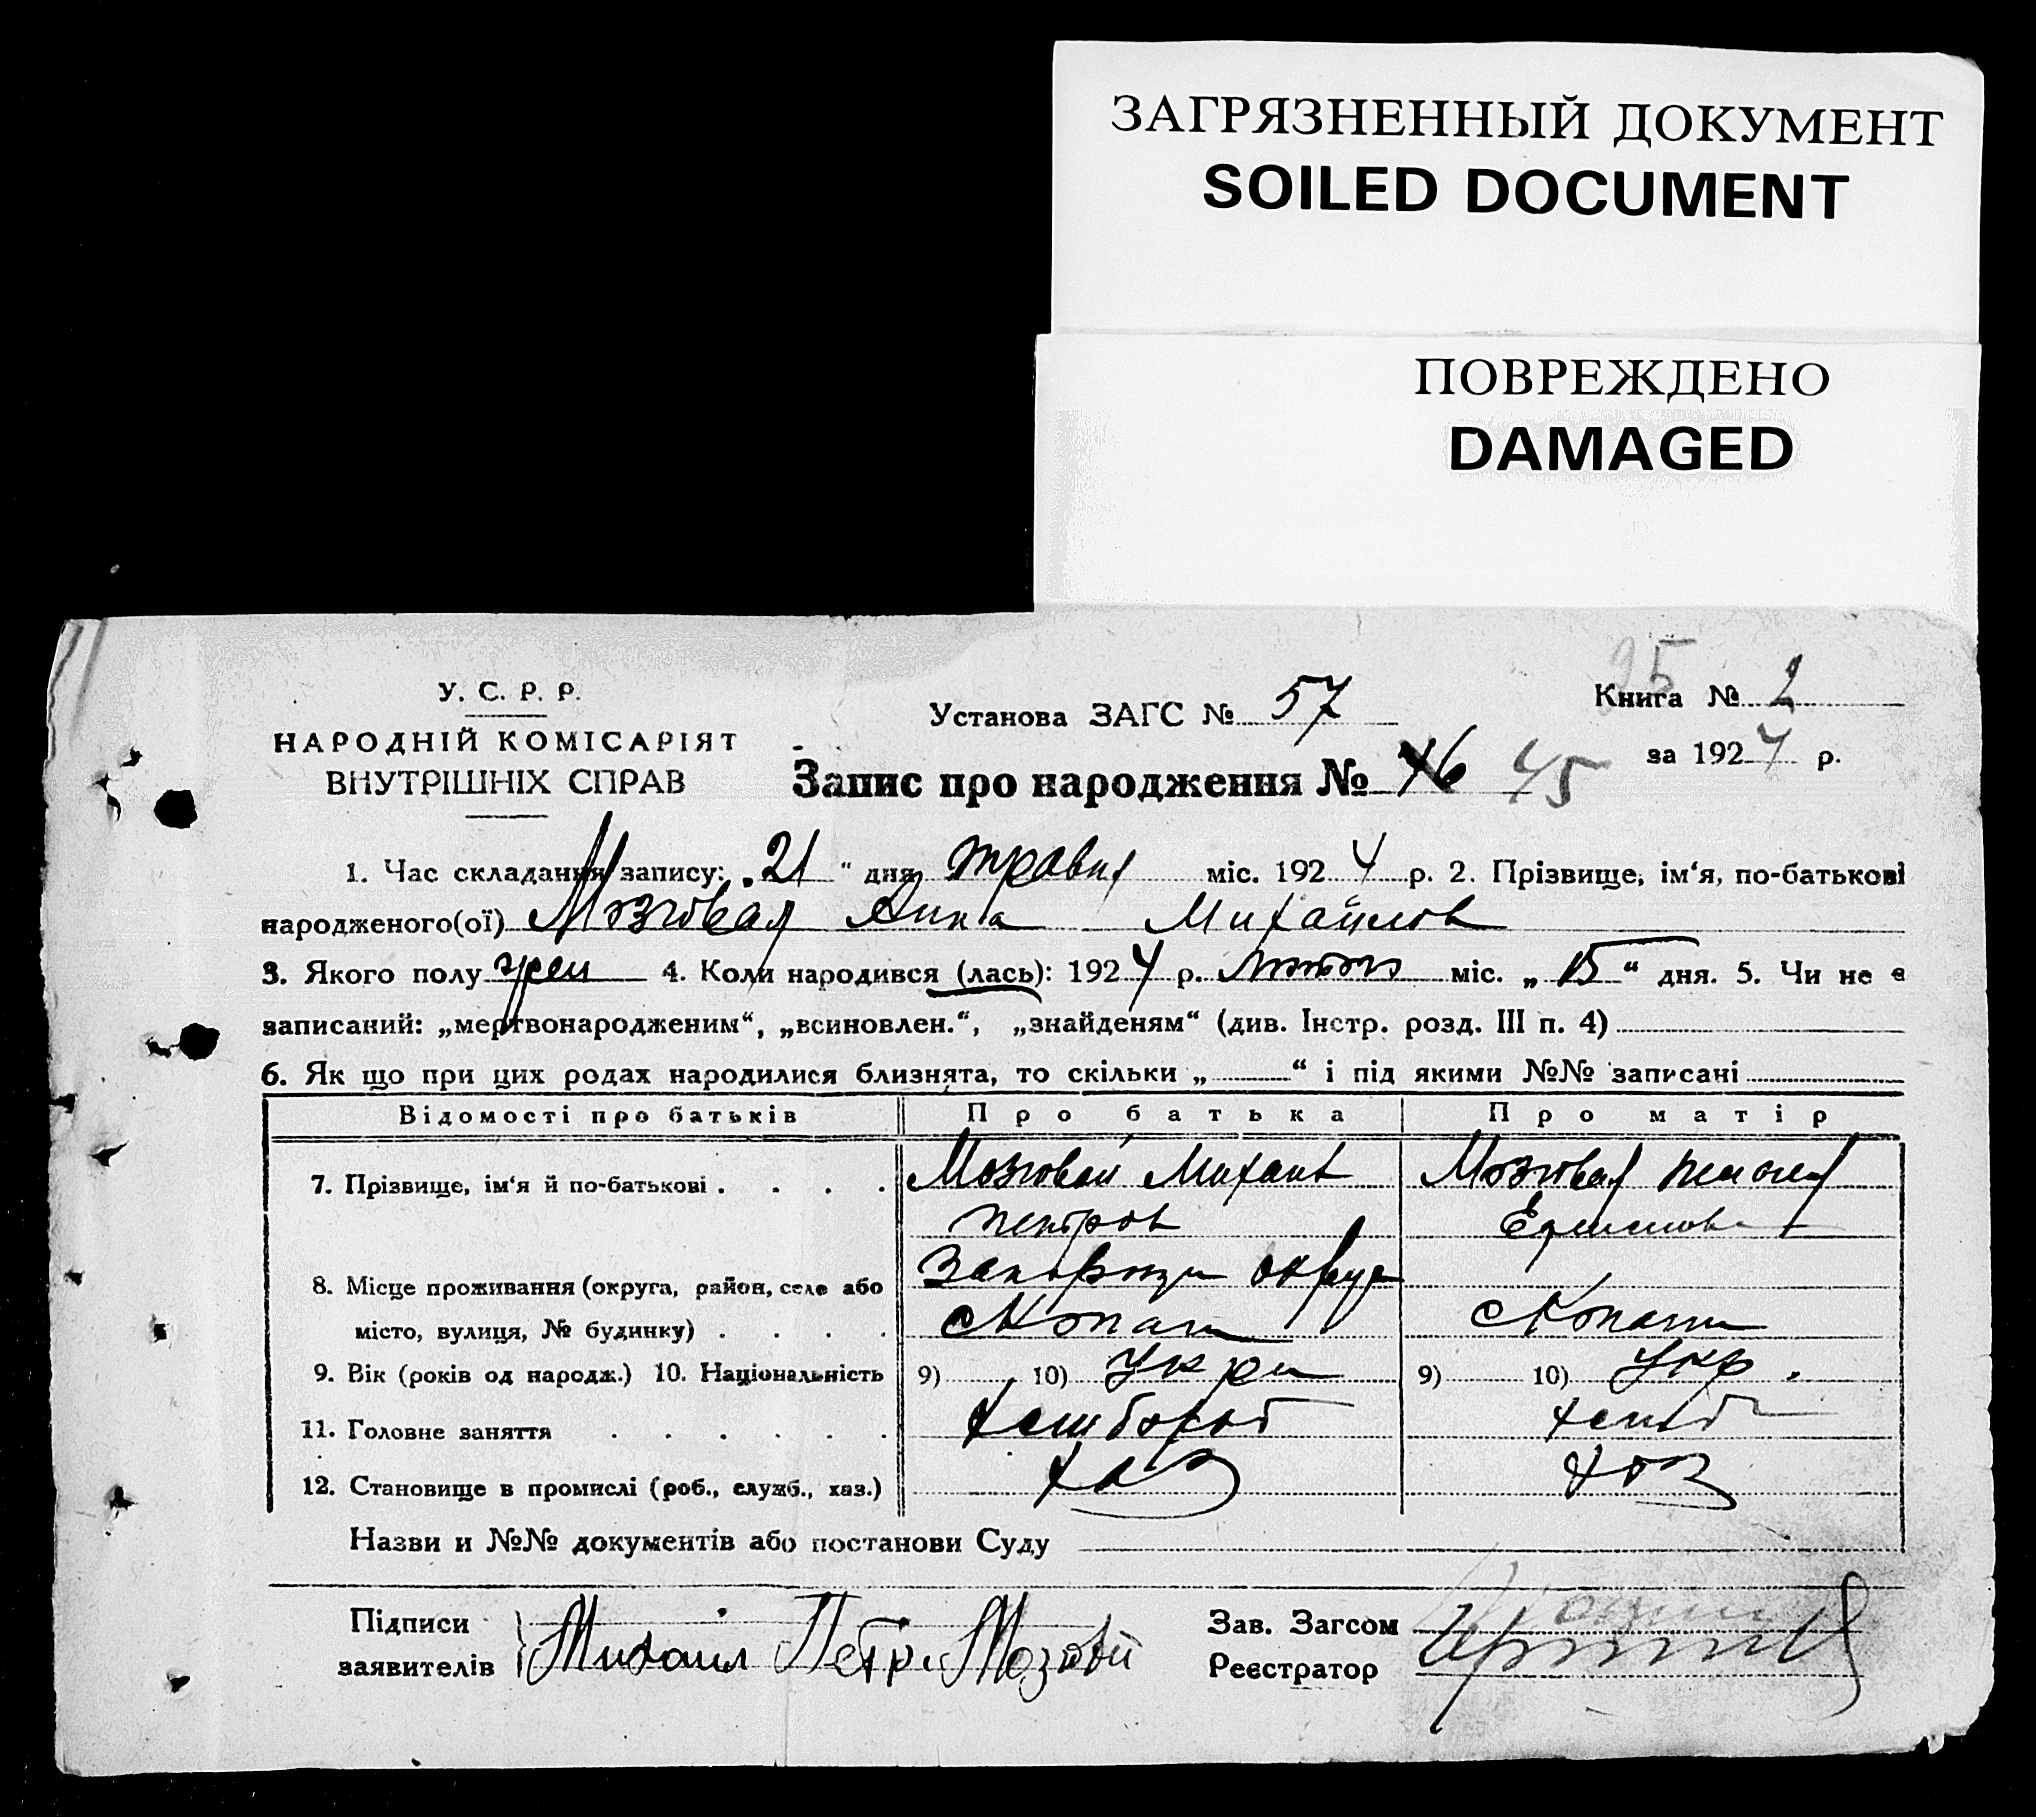 ЗАГРЯЗНЕННЫЙ ДОКУМЕНТ
SOILED DOCUMENT
ПОВРЕЖДЕНО
DAMAGED
У. С. Р. Р.
НАРОДНІЙ КОМІСАРІЯТ
ВНУТРІШНІХ СПРАВ
Установа ЗАГС № 57
Книга № 2
за 1924 р.
Запис про народження № 46 45
1. Час складання запису: „21“ дня травня міс. 1924 р. 2. Прізвище, ім‘я, по-батькові
народженого(ої) Мозговая Анна Михайлов
3. Якого полу жен 4. Коли народився (лась): 1924 р. лютого міс. „15“ дня. 5. Чи не є
записаний: „мертвонародженим“, „всиновлен.“, „знайденям“ (див. Інстр. розд. III п. 4)
6. Як що при цих родах народилися близнята, то скільки „ “ і під якими №№ записані
Відомості про батьків Про батька Про матір
7. Прізвище, ім‘я й по-батькові . . . . Мозговой Михаил Мозговая
Петров
8. Місце проживання (округа, район, селе або Запорізи округ
місто, вулиця, № будинку) . . . . с Копани с Копани
9. Вік (років од народж.) 10. Національність 9) 10) Укри 9) 10) Укр.
11. Головне заняття . . . . . . хлибороб
12. Становище в промислі (роб., служб., хаз.) хаз хоз
Назви и №№ документів або постанови Суду
Підписи
заявителів Михаил Петр. Мозовий
Зав. Загсом
Реєстратор